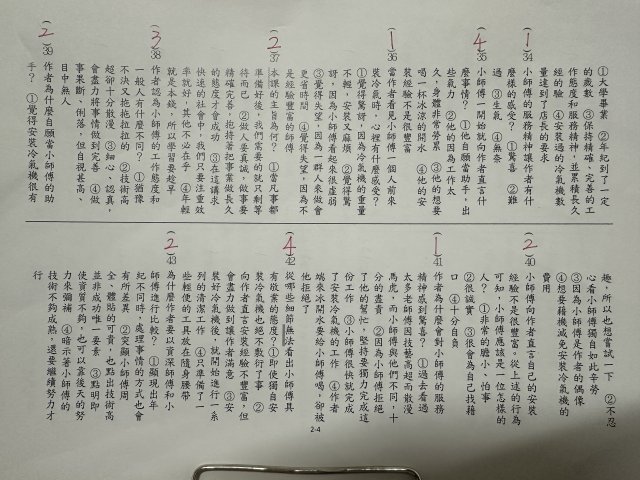 ①大學畢業　②年紀到了一定
的歲數　③秉持精確、完善的工
作態度和服務精神，並累積長久
經驗　④安裝過的冷氣機
量達到了店長的要求
（1）34 小師傅的服務精神讓作者有什
麼樣的感受？　①驚喜　②難
過　③生氣　④無奈
（4）35 小師傅一開始就向作者直言什
麼事情？　①他自願當助手，出
些氣力　②他的因為工作太
久，身體非常勞累　③他的想要
喝一杯冰涼的開水　④他的安
裝經驗不是很豐富
（1）36 當作者看見小師傅一個人前來
裝冷氣時，心裡有什麼感受？
①覺得驚訝，因為冷氣機的重量
不輕，安裝又麻煩　②覺得驚
訝，因為小師傅看起來很虛弱
③覺得失望，因為一群人來做會
更省時間　④覺得失望，因為不
是經驗豐富的師傅
（2）37 本課的主旨為何？　①當凡事都
準備好後，我們需要的就只剩等
待而已　②做人要真誠，做事要
精確完善，抱持著把事業做長久
的態度才會成功　③在這講求
快速的社會中，我們只要注重效
率就好，其他不必在乎　④年輕
就是本錢，所以學習要趁早
（3）38 作者認為小師傅的工作態度和
一般人有什麼不同？　①猶豫
不決又拖拖拉拉的　②技術高
超卻十分散漫　③細心、認真，
會盡力將事情做到完善　④做
事果斷、俐落，但自視甚高、
目中無人
（2）39 作者為什麼自願當小師傅的助
手？　①覺得安裝冷氣機很有
趣，所以也想嘗試一下　②不忍
心看小師傅獨自如此辛勞
③因為小師傅是作者的偶像
④想要藉機減免安裝冷氣機的
費用
（2）40 小師傅向作者直言自己的安裝
經驗不是很豐富。從上述的行為
可知，小師傅應該是一位怎樣的
人？　①非常的膽小、怕事
②很誠實　③很會為自己找藉
口　④十分自負
（1）41 作者為什麼會對小師傅的服務
精神感到驚喜？　①過去看過
太多老師傅因技藝高超而散漫
馬虎，而小師傅與他們不同，十
分的盡責　②因為小師傅拒絕
了他的幫忙，堅持要獨力完成這
份工作　③小師傅很快就完成
了安裝冷氣機的工作　④作者
端來冰開水要給小師傅喝，卻被
他拒絕了
（4）42 從哪些細節無法看出小師傅具
有敬業的態度？　①即使獨自安
裝冷氣機也絕不敷衍了事　②
向作者直言安裝經驗不豐富，但
會盡力做到讓作者滿意　③安
裝好冷氣機後，就開始進行一系
列的清潔工作　④只準備了一
些輕便的工具放在隨身腰帶
（2）43 為什麼作者要以資深師傅和小
師傅進行比較？　①顯現出年
紀不同時，處理事情的方式也會
有所差異　②突顯小師傅周
全、體貼的可貴，也點出技術高
並非成功唯一要素　③點明即
使資質不夠，也可以靠後天的努
力來彌補　④暗示著小師傅的
技術不夠成熟，還要繼續努力才
行
2-4